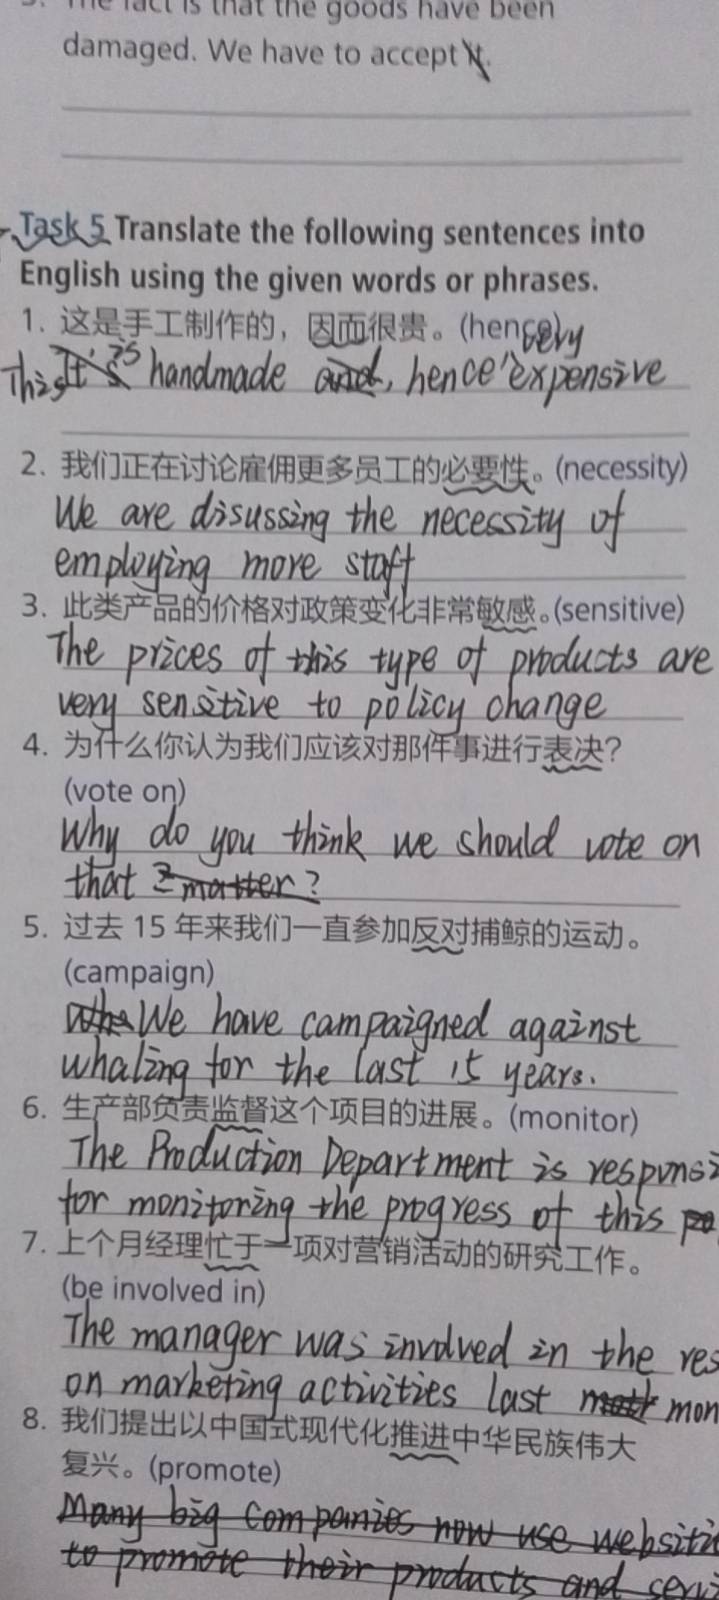 3. The fact is that the goods have been
damaged. We have to accept it.
Task 5 Translate the following sentences into
English using the given words or phrases.
1. 这是手工制作的，因而很贵。(hence)
very
This It's is handmade and, hence expensive
2. 我们正在讨论雇佣更多员工的必要性。(necessity)
We are disussing the necessity of
employing more staff
3. 此类产品的价格对政策变化非常敏感。(sensitive)
The prices of this type of products are
very sensitive to policy change
4. 为什么你认为我们应该对那件事进行表决？
(vote on)
Why do you think we should vote on
that matter?
5. 过去 15 年来我们一直参加反对捕鲸的运动。
(campaign)
We have campaigned against
whaling for the last 15 years.
6. 生产部负责监督这个项目的进展。(monitor)
The Production Department is responsi
for monitoring the progress of this
7. 上个月经理忙于一项对营销活动的研究工作。
(be involved in)
The manager was involved in the res
on marketing activities last mon
8. 我们提出以中国式现代化推进中华民族伟大
复兴。(promote)
Many big companies now use websiti
to promote their products and servi